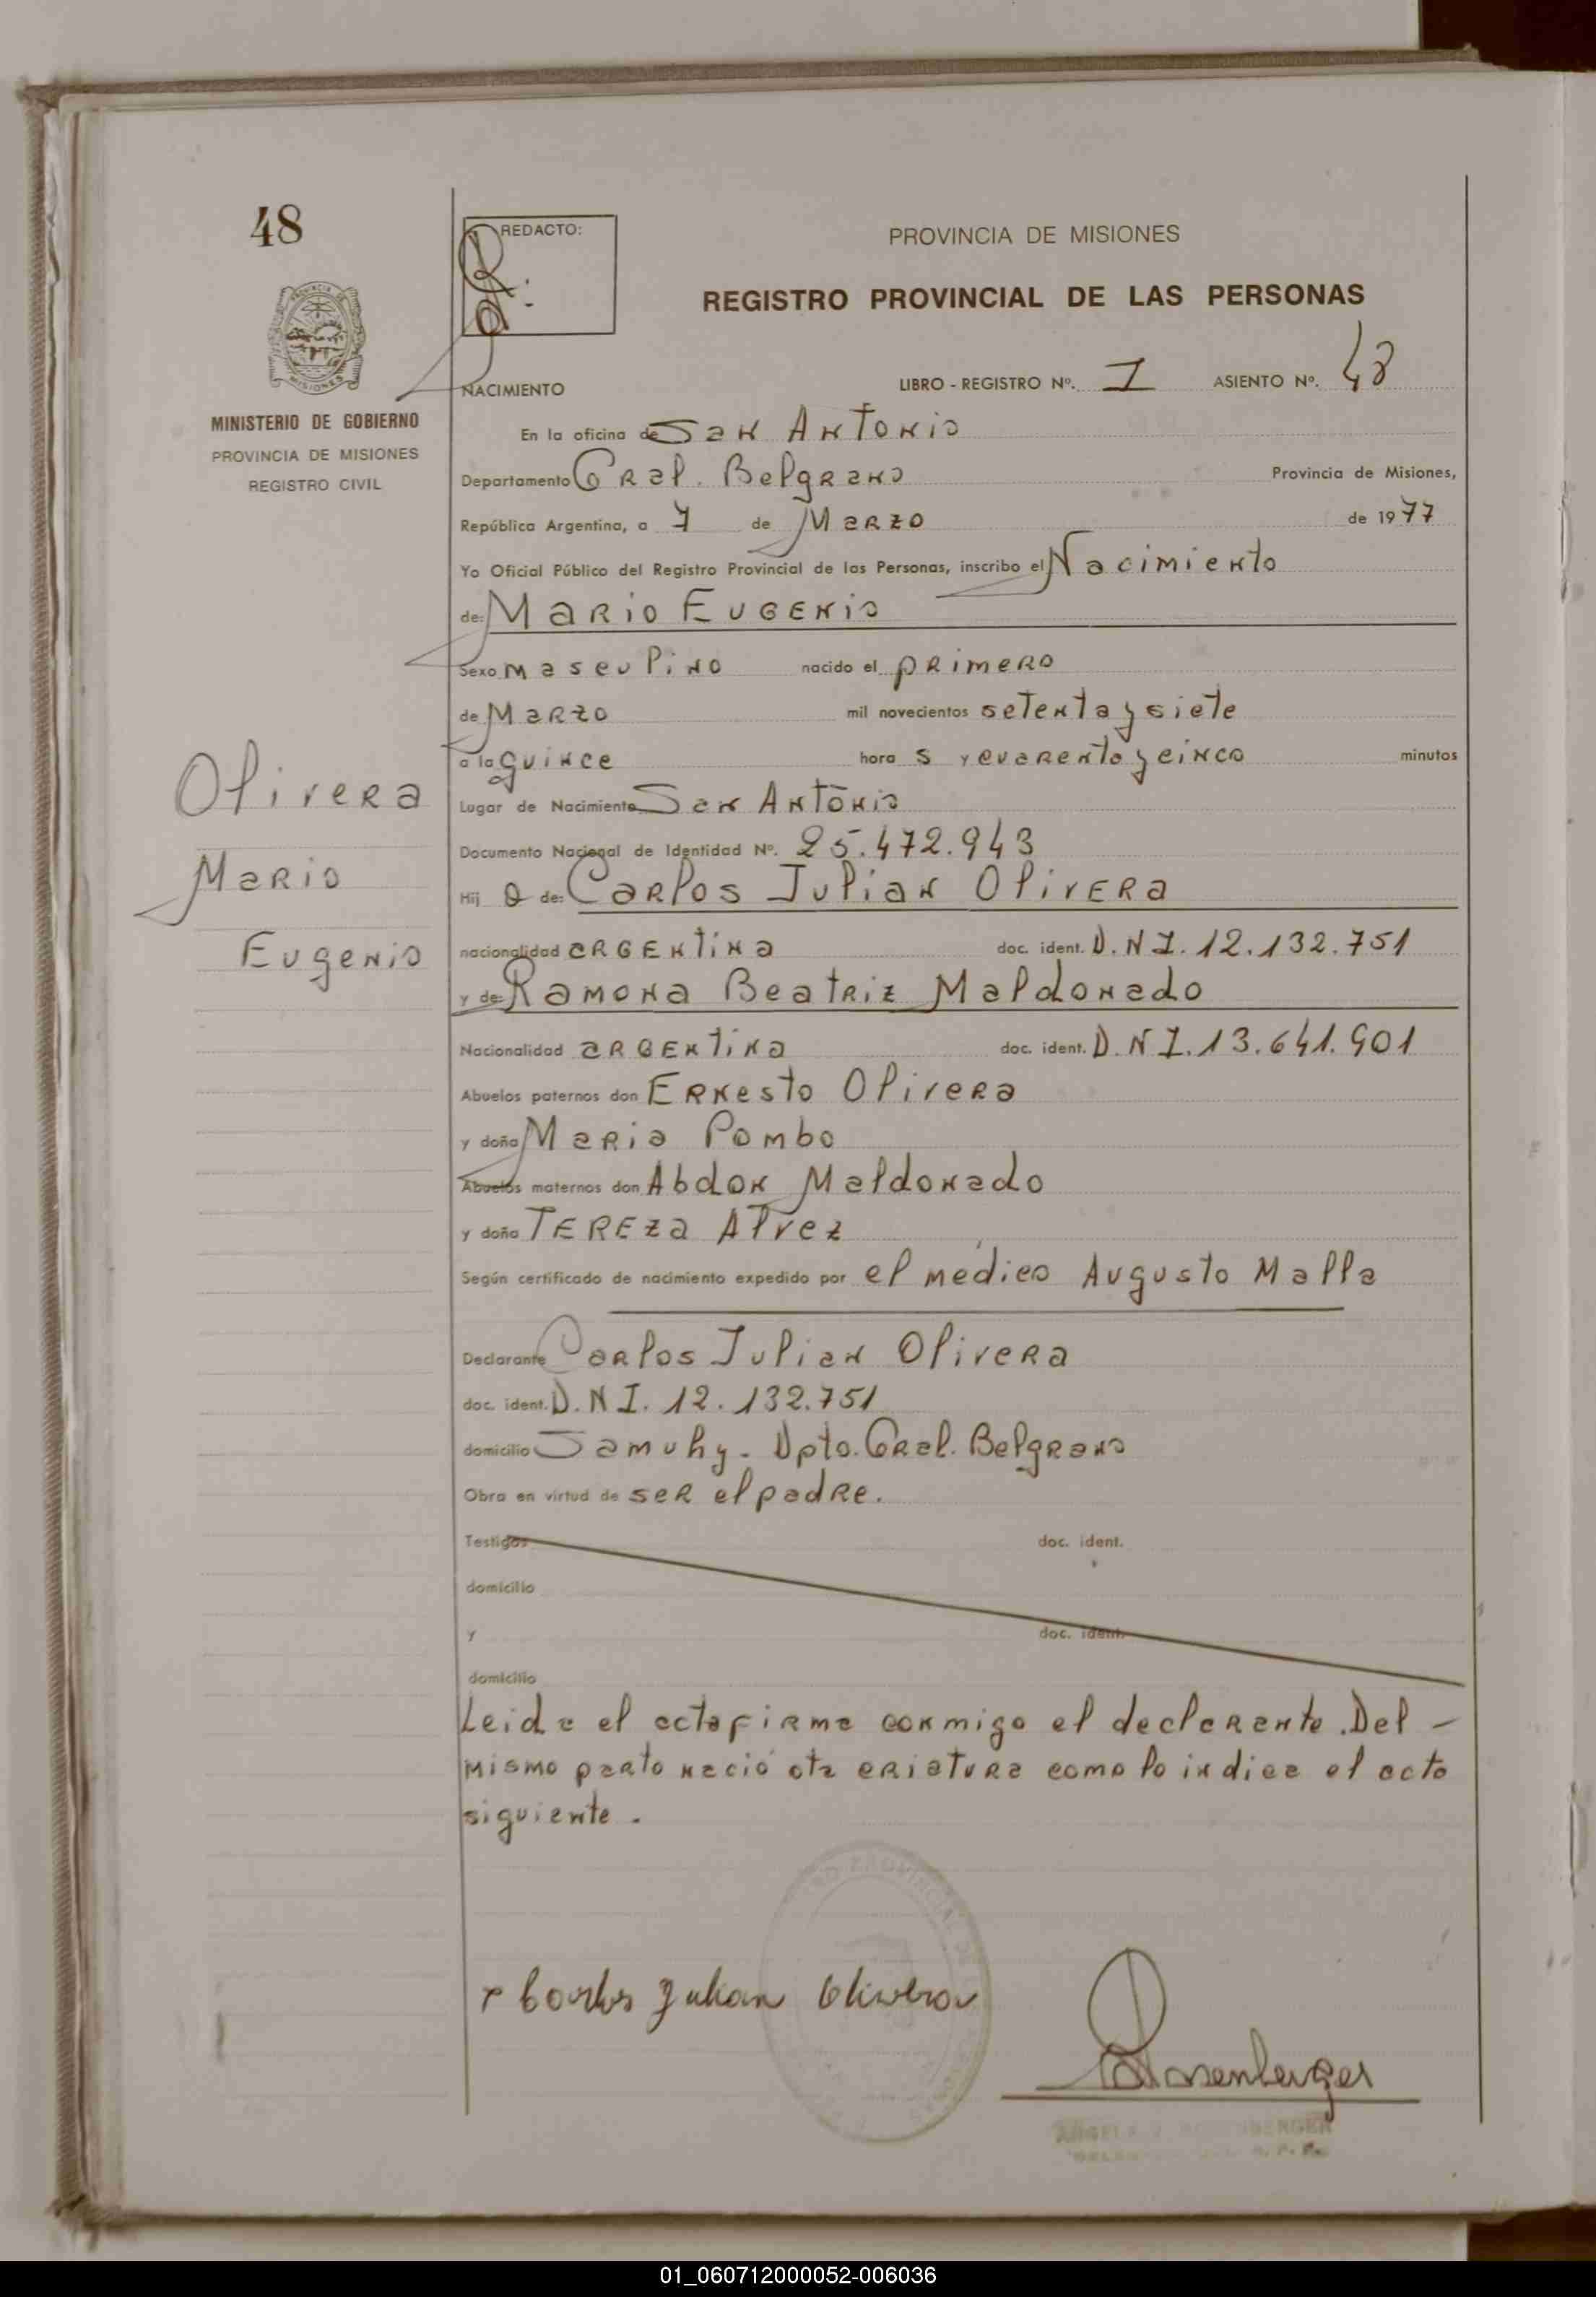 48
REDACTO:
PROVINCIA DE MISIONES
REGISTRO PROVINCIAL DE LAS PERSONAS
NACIMIENTO
LIBRO - REGISTRO Nº. I ASIENTO Nº. 48
MINISTERIO DE GOBIERNO
PROVINCIA DE MISIONES
REGISTRO CIVIL
En la oficina de San Antonio
Departamento Gral. Belgrano Provincia de Misiones,
República Argentina, a 7 de Marzo de 1977
Yo Oficial Público del Registro Provincial de las Personas, inscribo el Nacimiento
de: Mario Eugenio
Sexo masculino nacido el primero
de Marzo mil novecientos setenta y siete
a la quince hora s y cuarenta y cinco minutos
Olivera
Mario
Eugenio
Lugar de Nacimiento San Antonio
Documento Nacional de Identidad Nº. 25.472.943
Hij o de: Carlos Julian Olivera
nacionalidad argentina doc. ident. D.N.I. 12.132.751
y de: Ramona Beatriz Maldonado
Nacionalidad argentina doc. ident. D.N.I. 13.641.901
Abuelos paternos don Ernesto Olivera
y doña Maria Pombo
Abuelos maternos don Abdon Maldonado
y doña Tereza Alvez
Según certificado de nacimiento expedido por el médico Augusto Malla
Declarante Carlos Julian Olivera
doc. ident. D.N.I. 12.132.751
domicilio Samuhy - Dpto. Gral. Belgrano
Obra en virtud de ser el padre.
Testigos doc. ident.
domicilio
y doc. ident.
domicilio
Leida el acta firma conmigo el declarante. Del -
mismo parto nació ota criatura como lo indica el acta
siguiente.
Carlos Julian Olivera
Rosenberger
01_060712000052-006036